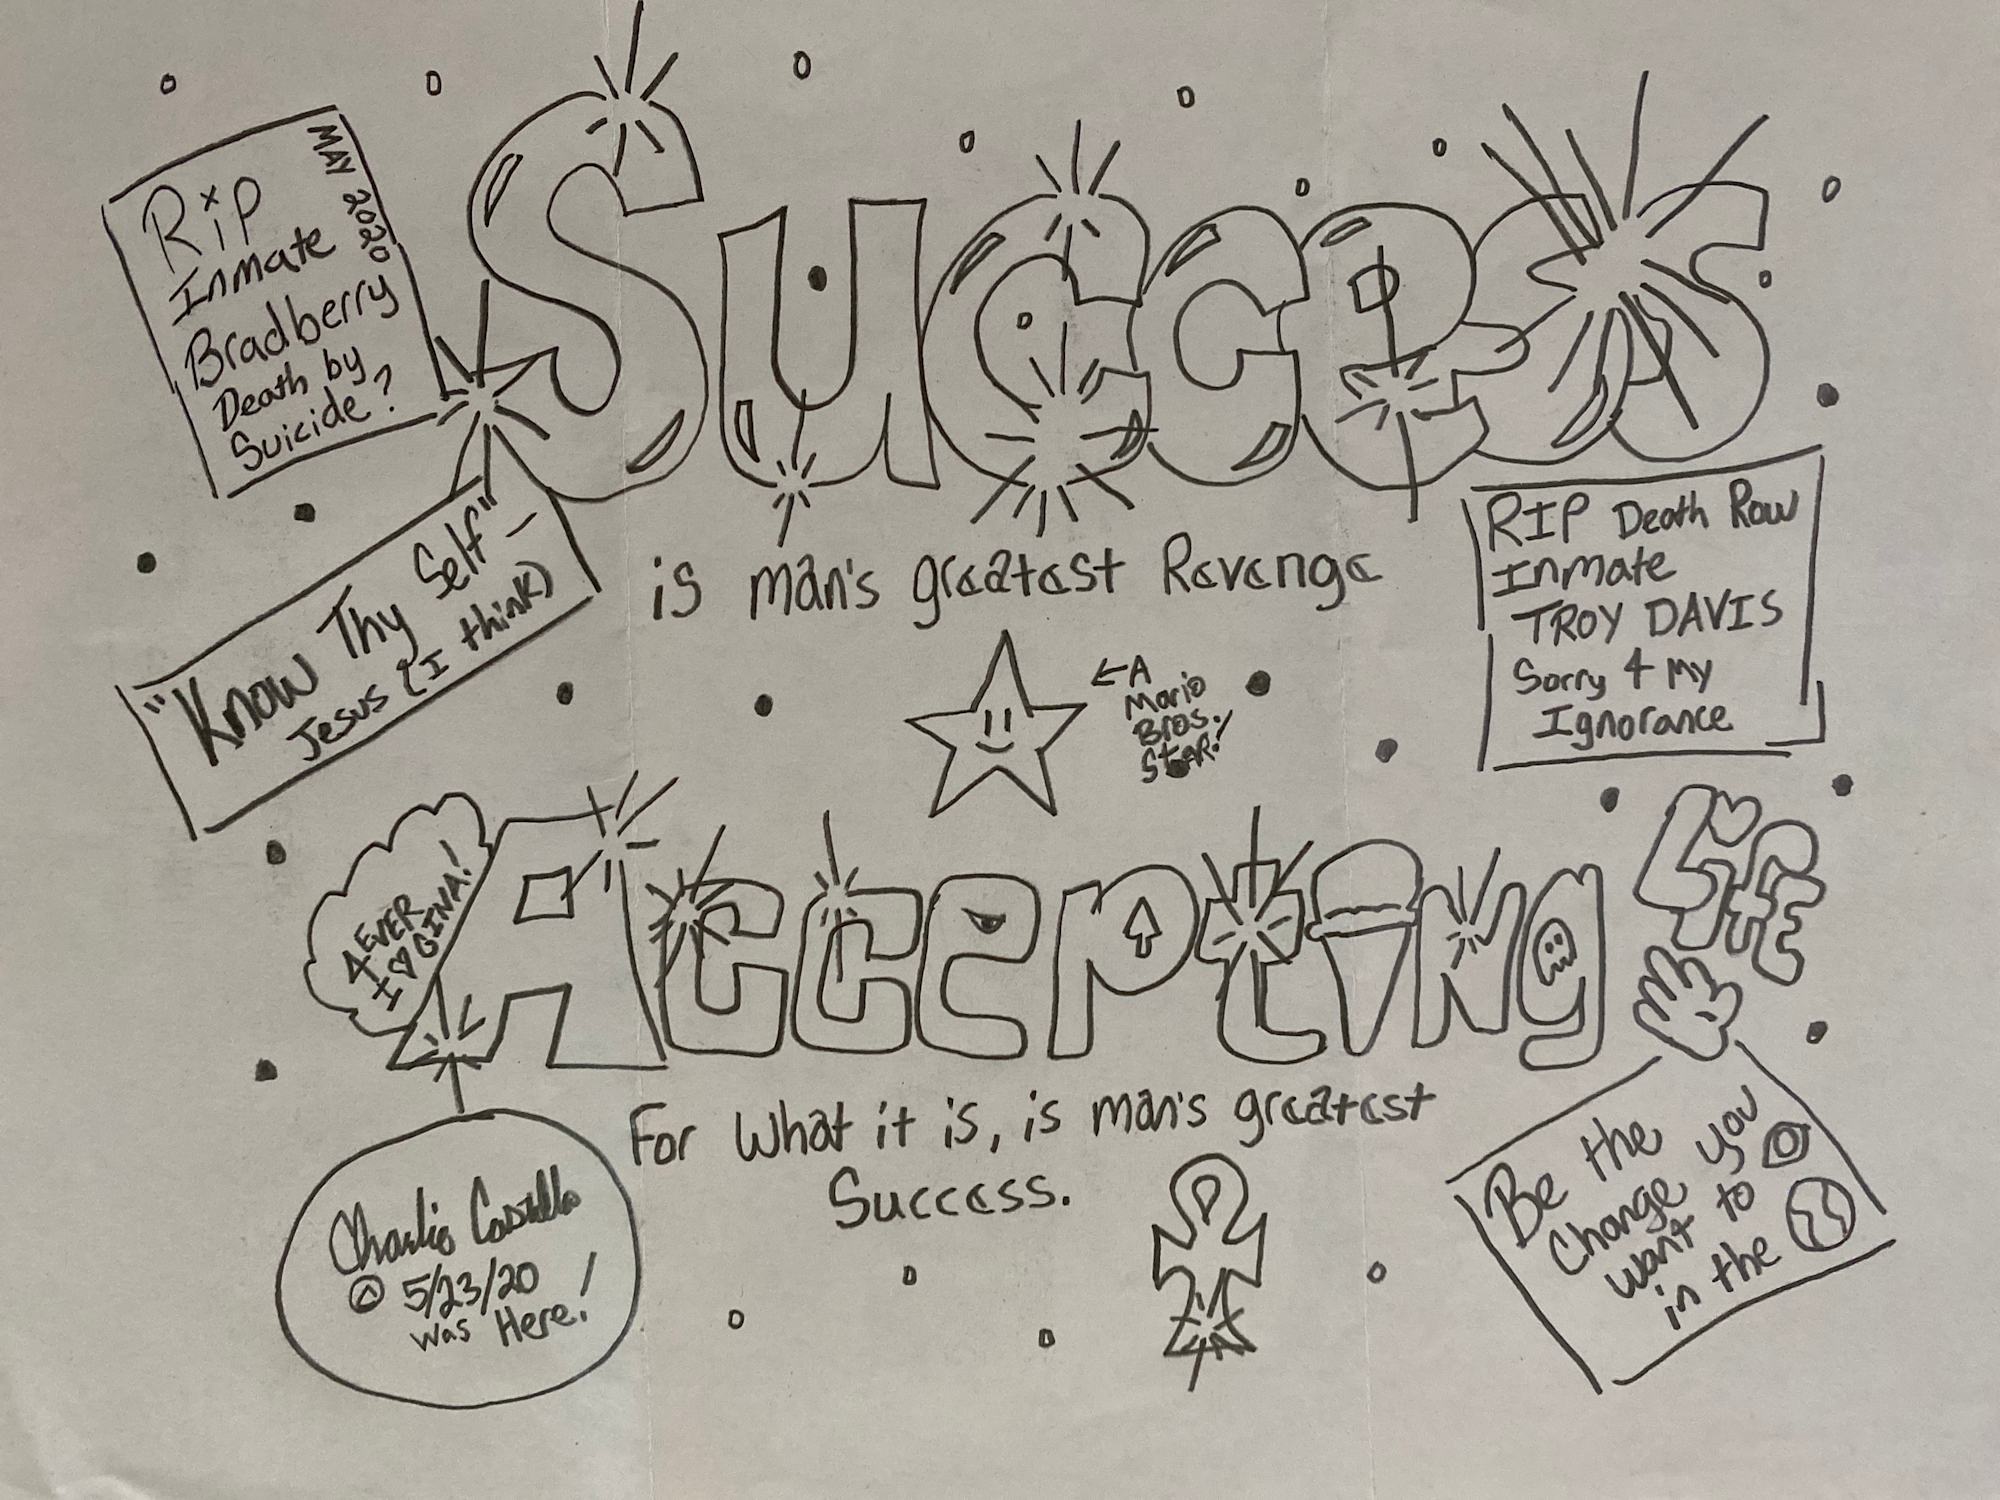 MAY 2020
RiP
Inmate
Bradberry
Death by
Suicide?
Success
is man's greatest Revenge
"Know Thy Self" –
Jesus (I think)
RIP Death Row
Inmate
TROY DAVIS
Sorry 4 My
Ignorance
← A
Mario
Bros.
STAR!
4 EVER
I ♡ GINA!
Accepting
Life
For what it is, is man's greatest
Success.
Charlie Castillo
5/23/20
was Here!
Be the
Change you
want to
in the